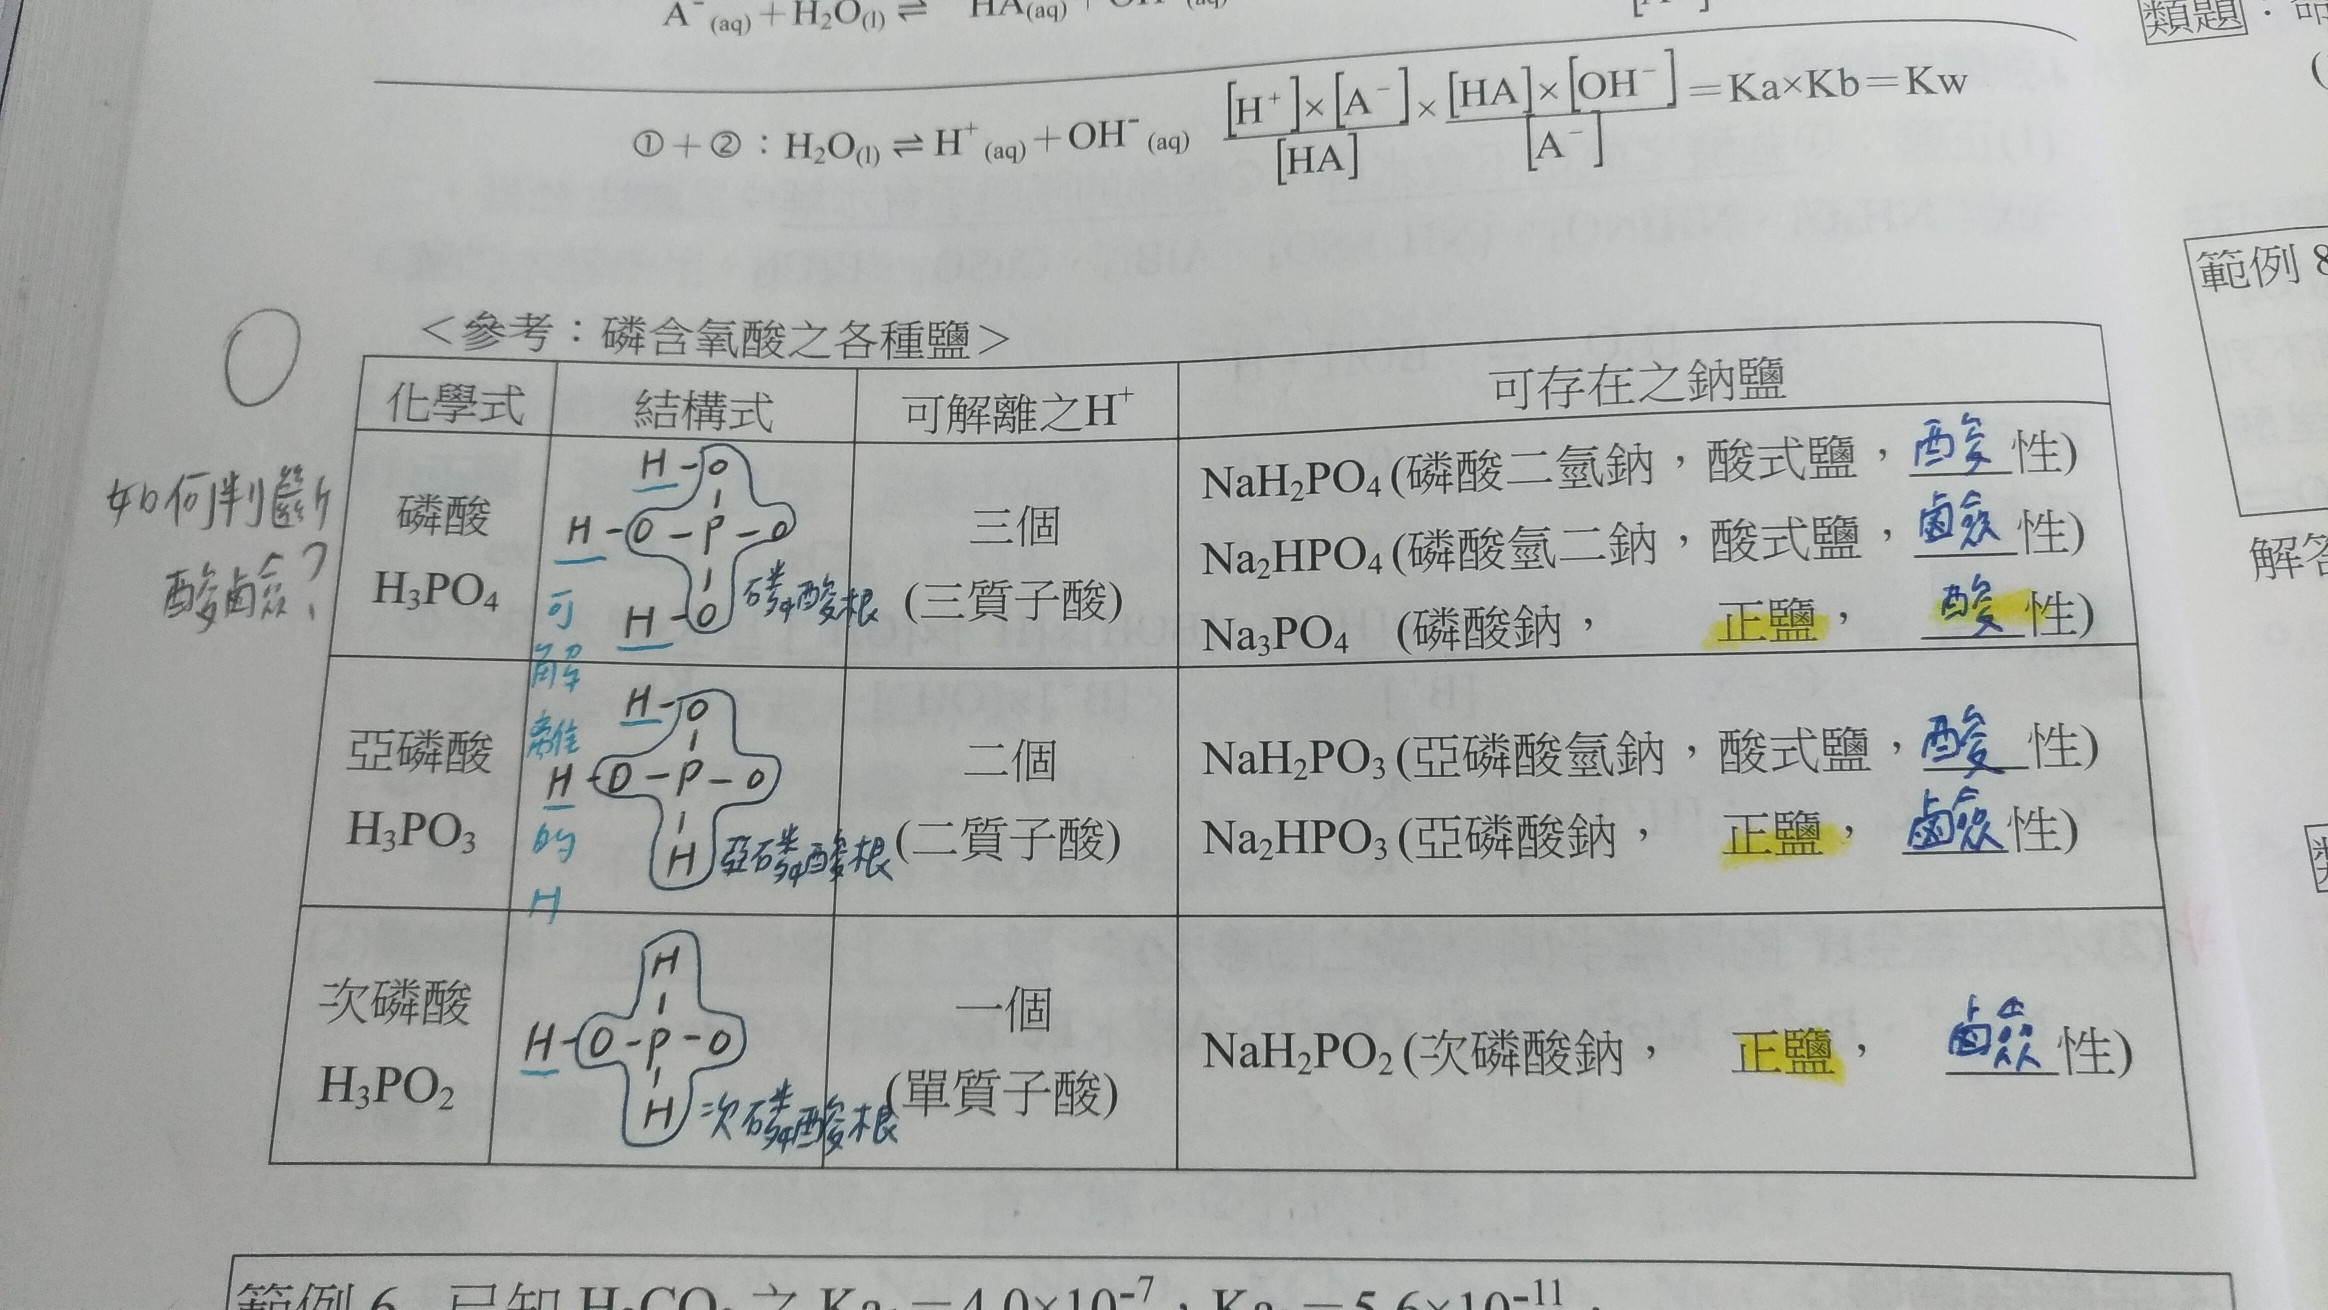 A⁻(aq)+H₂O(l) ⇌ HA(aq)+OH⁻(aq)
①+②：H₂O(l) ⇌ H⁺(aq)+OH⁻(aq) [H⁺]×[A⁻]/[HA] × [HA]×[OH⁻]/[A⁻] =Ka×Kb=Kw
<參考：磷含氧酸之各種鹽>
如何判斷
酸鹼?
化學式 結構式 可解離之H⁺ 可存在之鈉鹽
磷酸
H₃PO₄
H-O
H-O-P-O
H-O
磷酸根
可解離的H
三個
(三質子酸)
NaH₂PO₄(磷酸二氫鈉，酸式鹽，酸性)
Na₂HPO₄(磷酸氫二鈉，酸式鹽，鹼性)
Na₃PO₄ (磷酸鈉， 正鹽， 酸性)
亞磷酸
H₃PO₃
H-O
H-O-P-O
H
亞磷酸根
二個
(二質子酸)
NaH₂PO₃(亞磷酸氫鈉，酸式鹽，酸性)
Na₂HPO₃(亞磷酸鈉， 正鹽， 鹼性)
次磷酸
H₃PO₂
H
H-O-P-O
H
次磷酸根
一個
(單質子酸)
NaH₂PO₂(次磷酸鈉， 正鹽， 鹼性)
範例 6 已知 H₂CO₃ 之 Ka₁=4.0×10⁻⁷，Ka₂=5.6×10⁻¹¹，
類題：
範例 8
解答